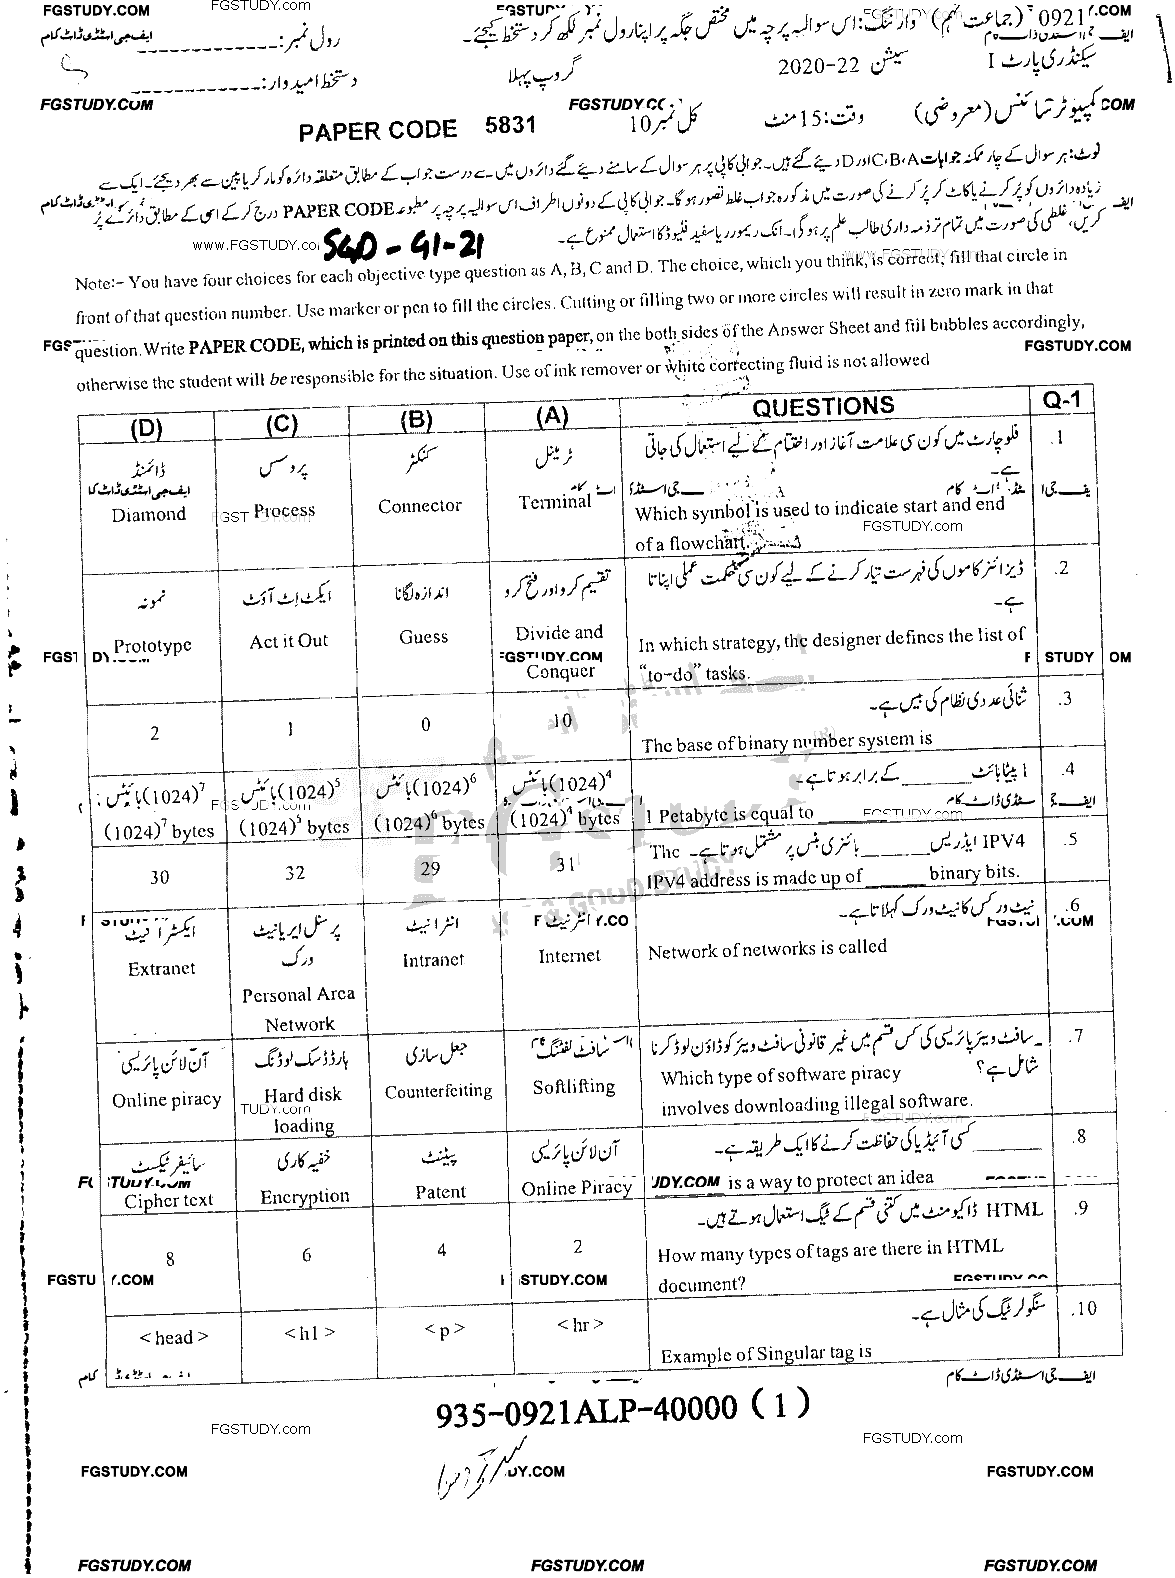 FGSTUDY.COM
FGSTUDY.com
0921 (جماعت نہم) وارننگ: اس سوالیہ پرچہ میں مختص جگہ پر اپنا رول نمبر لکھ کر دستخط کیجئے۔
رول نمبر: _ _ _ _ _ _ _ _ _ _ _ _ _
ایف جی اسٹڈی ڈاٹ کام
سیکنڈری پارٹ I سیشن 22-2020 گروپ پہلا دستخط امیدوار: _ _ _ _ _ _ _ _ _ _ _ _
FGSTUDY.COM
کمپیوٹر سائنس (معروضی) وقت: 15 منٹ کل نمبر 10
PAPER CODE 5831
نوٹ: ہر سوال کے چار ممکنہ جوابات C،B،A اور D دیئے گئے ہیں۔ جوابی کاپی پر ہر سوال کے سامنے دیئے گئے دائروں میں سے درست جواب کے مطابق متعلقہ دائرہ کو مارکر یا پین سے بھر دیجئے۔ ایک سے
زیادہ دائروں کو پُر کرنے یا کاٹ کر پُر کرنے کی صورت میں مذکورہ جواب غلط تصور ہو گا۔ جوابی کاپی کے دونوں اطراف اس سوالیہ پرچہ پر مطبوعہ PAPER CODE درج کر کے اسی کے مطابق دائرے پُر
کریں، غلطی کی صورت میں تمام تر ذمہ داری طالب علم پر ہو گی۔ انک ریموور یا سفید فلیوڈ کا استعمال ممنوع ہے۔
SGD-G1-21
Note:- You have four choices for each objective type question as A, B, C and D. The choice, which you think, is correct; fill that circle in
front of that question number. Use marker or pen to fill the circles. Cutting or filling two or more circles will result in zero mark in that
question. Write PAPER CODE, which is printed on this question paper, on the both sides of the Answer Sheet and fill bubbles accordingly,
FGSTUDY.COM
otherwise the student will be responsible for the situation. Use of ink remover or white correcting fluid is not allowed
(D) (C) (B) (A) QUESTIONS Q-1
1. فلوچارٹ میں کون سی علامت آغاز اور اختتام کے لیے استعمال کی جاتی
ہے۔
ٹرمینل کنکٹر پروسس ڈائمنڈ
Which symbol is used to indicate start and end
of a flowchart.
Diamond Process Connector Terminal
FGSTUDY.com
2. ڈیزائنر کاموں کی فہرست تیار کرنے کے لیے کون سی حکمت عملی اپناتا
ہے۔
تقسیم کرو اور فتح کرو اندازہ لگانا ایکٹ اِٹ آؤٹ نمونہ
In which strategy, the designer defines the list of
"to-do" tasks.
Prototype Act it Out Guess Divide and
Conquer
FGSTUDY.COM
3. ثنائی عددی نظام کی بیس ہے۔
The base of binary number system is
2 1 0 10
4. 1 پیٹا بائٹ ______ کے برابر ہوتا ہے۔
(1024)⁷ بائٹس (1024)⁵ بائٹس (1024)⁶ بائٹس (1024)⁴ بائٹس
1 Petabyte is equal to ______
(1024)⁷ bytes (1024)⁵ bytes (1024)⁶ bytes (1024)⁴ bytes
5. IPV4 ایڈریس ______ بائنری بٹس پر مشتمل ہوتا ہے۔ The
IPV4 address is made up of ______ binary bits.
30 32 29 31
6. نیٹ ورکس کا نیٹ ورک کہلاتا ہے۔
انٹرنیٹ انٹرانیٹ پرسنل ایریا نیٹ ورک ایکسٹرانیٹ
Network of networks is called
Extranet Personal Area
Network Intranet Internet
7. سافٹ ویئر پائریسی کی کس قسم میں غیر قانونی سافٹ ویئر کو ڈاؤن لوڈ کرنا
شامل ہے؟
سافٹ لفٹنگ جعل سازی ہارڈ ڈسک لوڈنگ آن لائن پائریسی
Which type of software piracy
involves downloading illegal software.
Online piracy Hard disk
loading Counterfeiting Softlifting
8. ______ کسی آئیڈیا کی حفاظت کرنے کا ایک طریقہ ہے۔
آن لائن پائریسی پیٹنٹ خفیہ کاری سائیفر ٹیکسٹ
is a way to protect an idea
Cipher text Encryption Patent Online Piracy
9. HTML ڈاکیومنٹ میں کتنی قسم کے ٹیگ استعمال ہوتے ہیں۔
How many types of tags are there in HTML
document?
8 6 4 2
10. سنگولر ٹیگ کی مثال ہے۔
Example of Singular tag is
<head> <h1> <p> <hr>
ایف جی اسٹڈی ڈاٹ کام
935-0921ALP-40000 (1)
FGSTUDY.com FGSTUDY.com
FGSTUDY.COM FGSTUDY.COM
FGSTUDY.COM FGSTUDY.COM FGSTUDY.COM